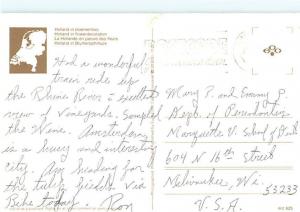 Holland in bloementooi
Holland in flowerdecoration
La Hollande en parure des fleurs
Holland in Blumenschmuck
Had a wonderful
train ride up
the Rhine River & excellent
view of Vineyards, Sampled
the Wine. Amsterdam
is a busy and interesting
city. Am heading for
the tulip fields via
Bike today. Ron
Mary P. and Sammy P.
Dept. of Periodontics
Marquette U. School of Dent
604 N 16th Street
Milwaukee, Wi.
53233
U.S.A.